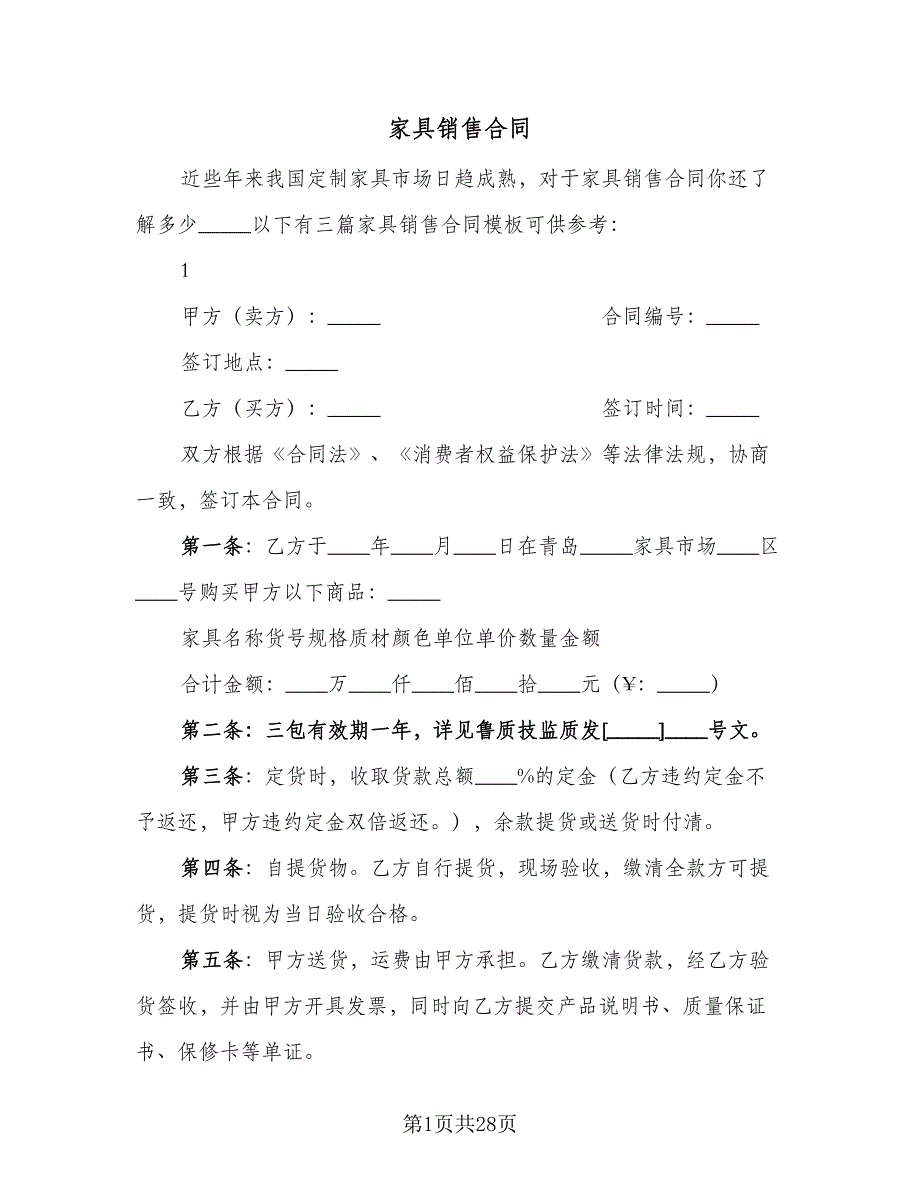 家具销售合同
近些年来我国定制家具市场日趋成熟，对于家具销售合同你还了
解多少_____以下有三篇家具销售合同模板可供参考：
1
甲方（卖方）：_____ 合同编号：_____
签订地点：_____
乙方（买方）：_____ 签订时间：_____
双方根据《合同法》、《消费者权益保护法》等法律法规，协商
一致，签订本合同。
第一条：乙方于____年____月____日在青岛_____家具市场____区
____号购买甲方以下商品：_____
家具名称货号规格质材颜色单位单价数量金额
合计金额：____万____仟____佰____拾____元（¥：_____）
第二条：三包有效期一年，详见鲁质技监质发[_____]____号文。
第三条：定货时，收取货款总额____%的定金（乙方违约定金不
予返还，甲方违约定金双倍返还。），余款提货或送货时付清。
第四条：自提货物。乙方自行提货，现场验收，缴清全款方可提
货，提货时视为当日验收合格。
第五条：甲方送货，运费由甲方承担。乙方缴清货款，经乙方验
货签收，并由甲方开具发票，同时向乙方提交产品说明书、质量保证
书、保修卡等单证。
第1页共28页